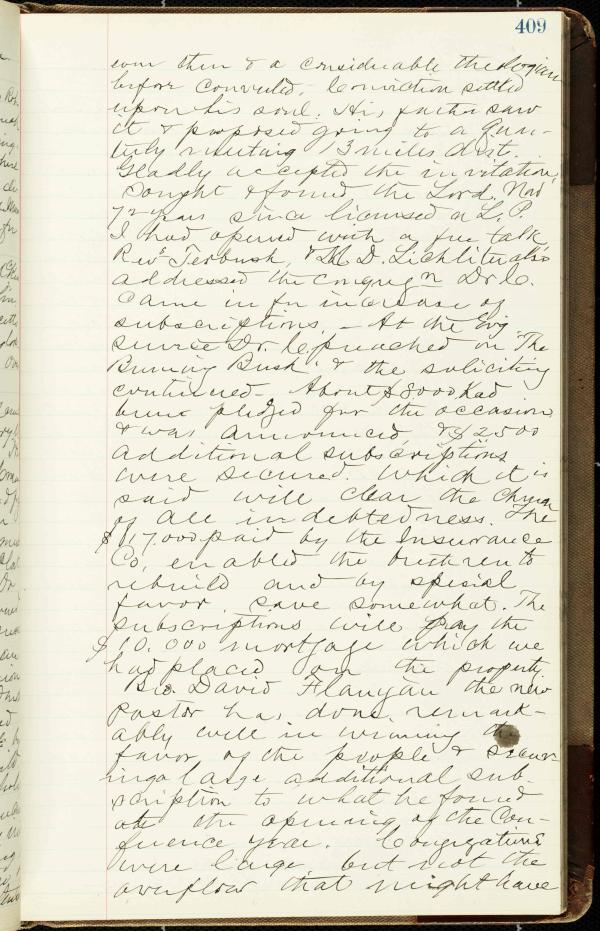 409
even then & a considerable theologian
before converted. Conviction settled
upon his soul. His father saw
it & proposed going to a Quar-
terly meeting 13 miles dist.
Gladly accepted the invitation,
Sought & found the Lord. Now
72 years since licensed a L. P.
I had opened with a free talk,
Revs Terbush, & M. D. Lichliter also
addressed the congregn Dr. C.
came in for increase of
subscriptions. - At the Evg.
service Dr. C. preached on "The
Burning Bush" & the soliciting
continued - About $8000 had
been pledged for the occasion
& was announced, & $2500
additional subscriptions
were secured. Which it is
said will clear the church
of all indebtedness. The
$17,000 paid by the Insurance
Co, enabled the brethren to
rebuild and by special
favor save somewhat. The
subscriptions will pay the
$10,000 mortgage which we
had placed on the property.
Bro. David Flanigan the new
Pastor has done remark-
ably well in winning the
favor of the people & secur-
ing a large additional sub-
scription to what he found
at the opening of the Con-
ference year. Congregations
were large but not the
overflow that might have